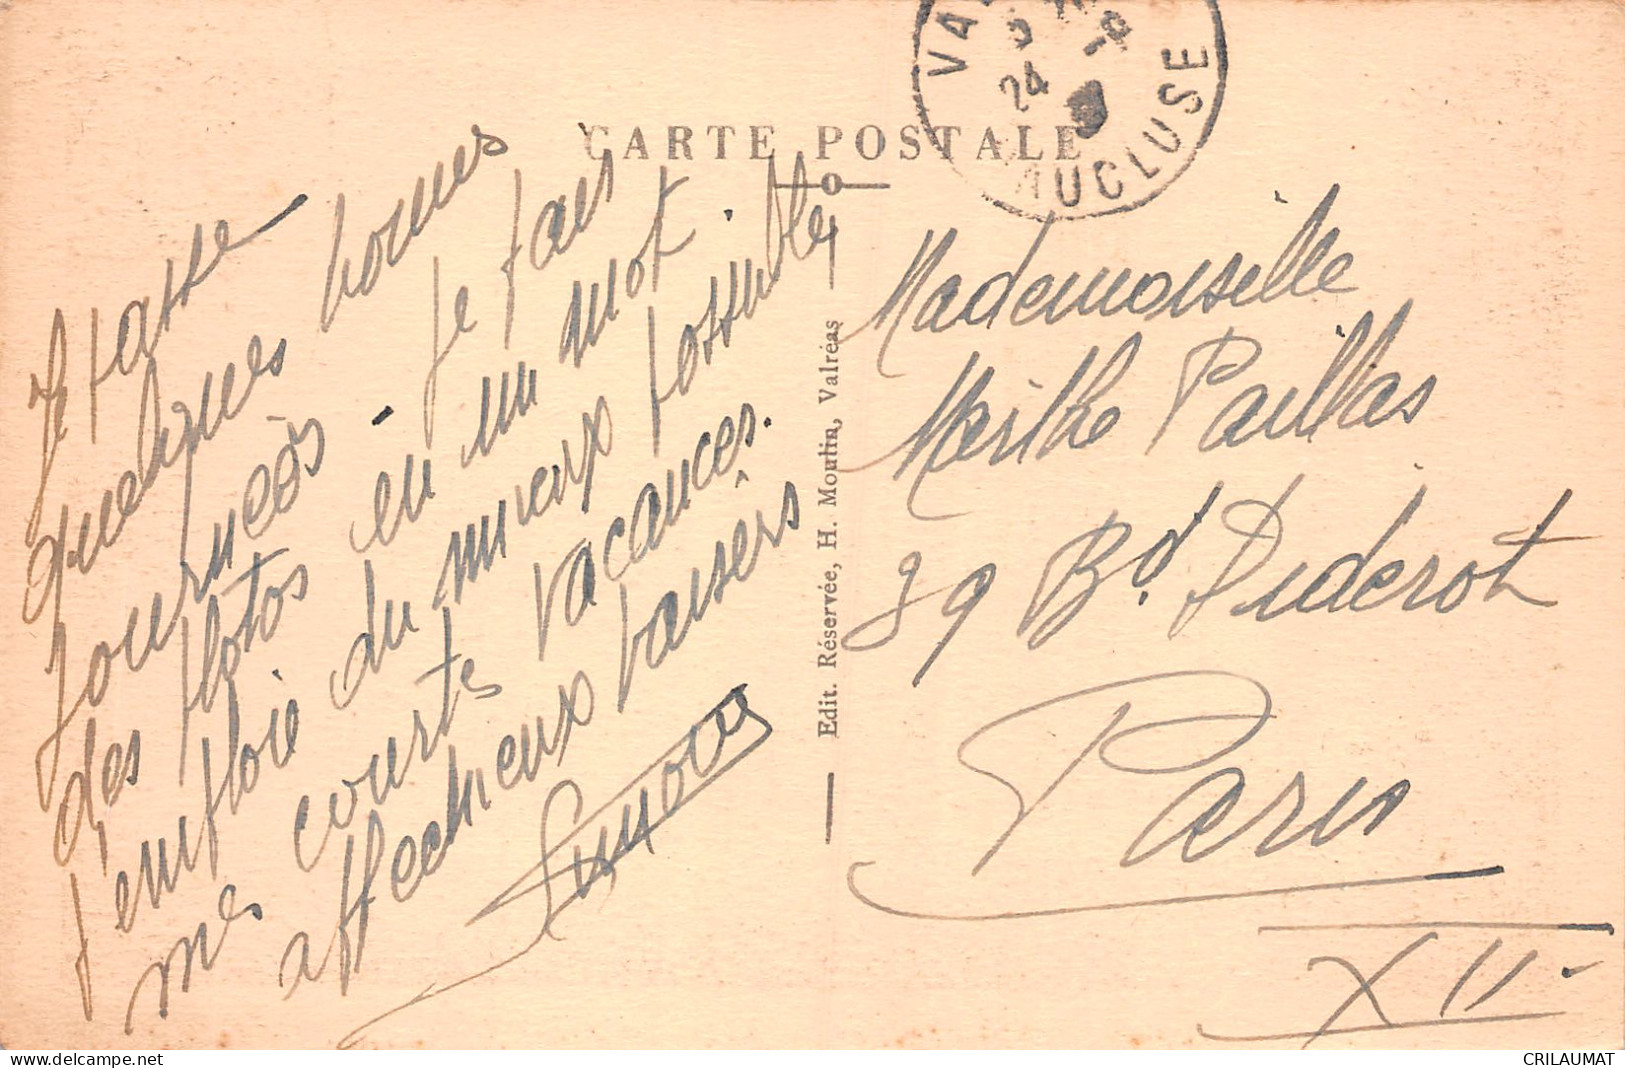 CARTE POSTALE
VA
24
VAUCLUSE
Je passe
quelques bonnes
journées - Je fais
des photos en un mot
j'emploie du mieux possible
mes courtes vacances.
affectueux baisers
Edit. Réservée, H. Moulin, Valréas
Mademoiselle
Marthe Paillas
39 Bd. Diderot
Paris
XII
CRILAUMAT